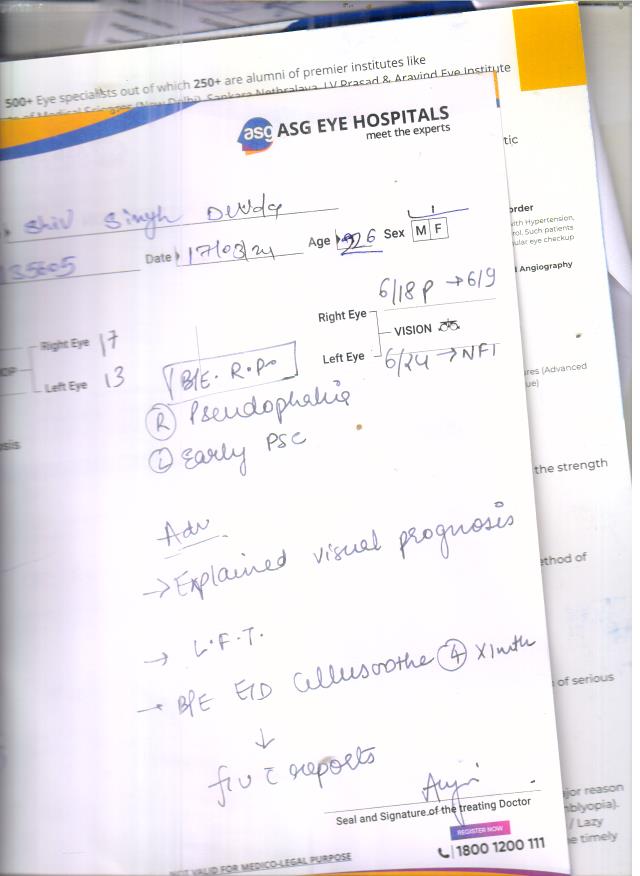 500+ Eye specialists out of which 250+ are alumni of premier institutes like
Sankara Nethralaya, LV Prasad & Aravind Eye Institute
asg ASG EYE HOSPITALS
meet the experts
tic
Shiv Singh
135605
Date 17/03/24 Age 26 Sex M F
order
with Hypertension,
rol. Such patients
ular eye checkup
Angiography
Right Eye 17
Left Eye 13
Right Eye 6/18 P → 6/9
VISION
Left Eye 6/24 → NFI
B/E. R.P.
(R) Pseudophakia
(L) Early PSC
res (Advanced
ue)
the strength
Adv
→ Explained visual prognosis
ethod of
→ L.F.T.
→ B/E E/D Cellusoothe (4) X 1 mth
of serious
↓
f/u c̄ reports
Seal and Signature of the treating Doctor
REGISTER NOW
1800 1200 111
NOT VALID FOR MEDICO-LEGAL PURPOSE
ajor reason
mblyopia).
/ Lazy
e timely